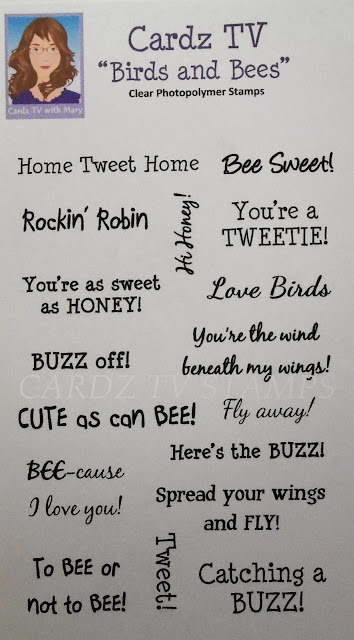 Cardz TV with Mary
Cardz TV
“Birds and Bees”
Clear Photopolymer Stamps
Home Tweet Home
Bee Sweet!
Rockin' Robin
Hi Honey!
You're a
TWEETIE!
You're as sweet
as HONEY!
Love Birds
You're the wind
beneath my wings!
BUZZ off!
CARDZ TV STAMPS
CUTE as can BEE!
Fly away!
Here's the BUZZ!
BEE-cause
I love you!
Spread your wings
and FLY!
To BEE or
not to BEE!
Tweet!
Catching a
BUZZ!